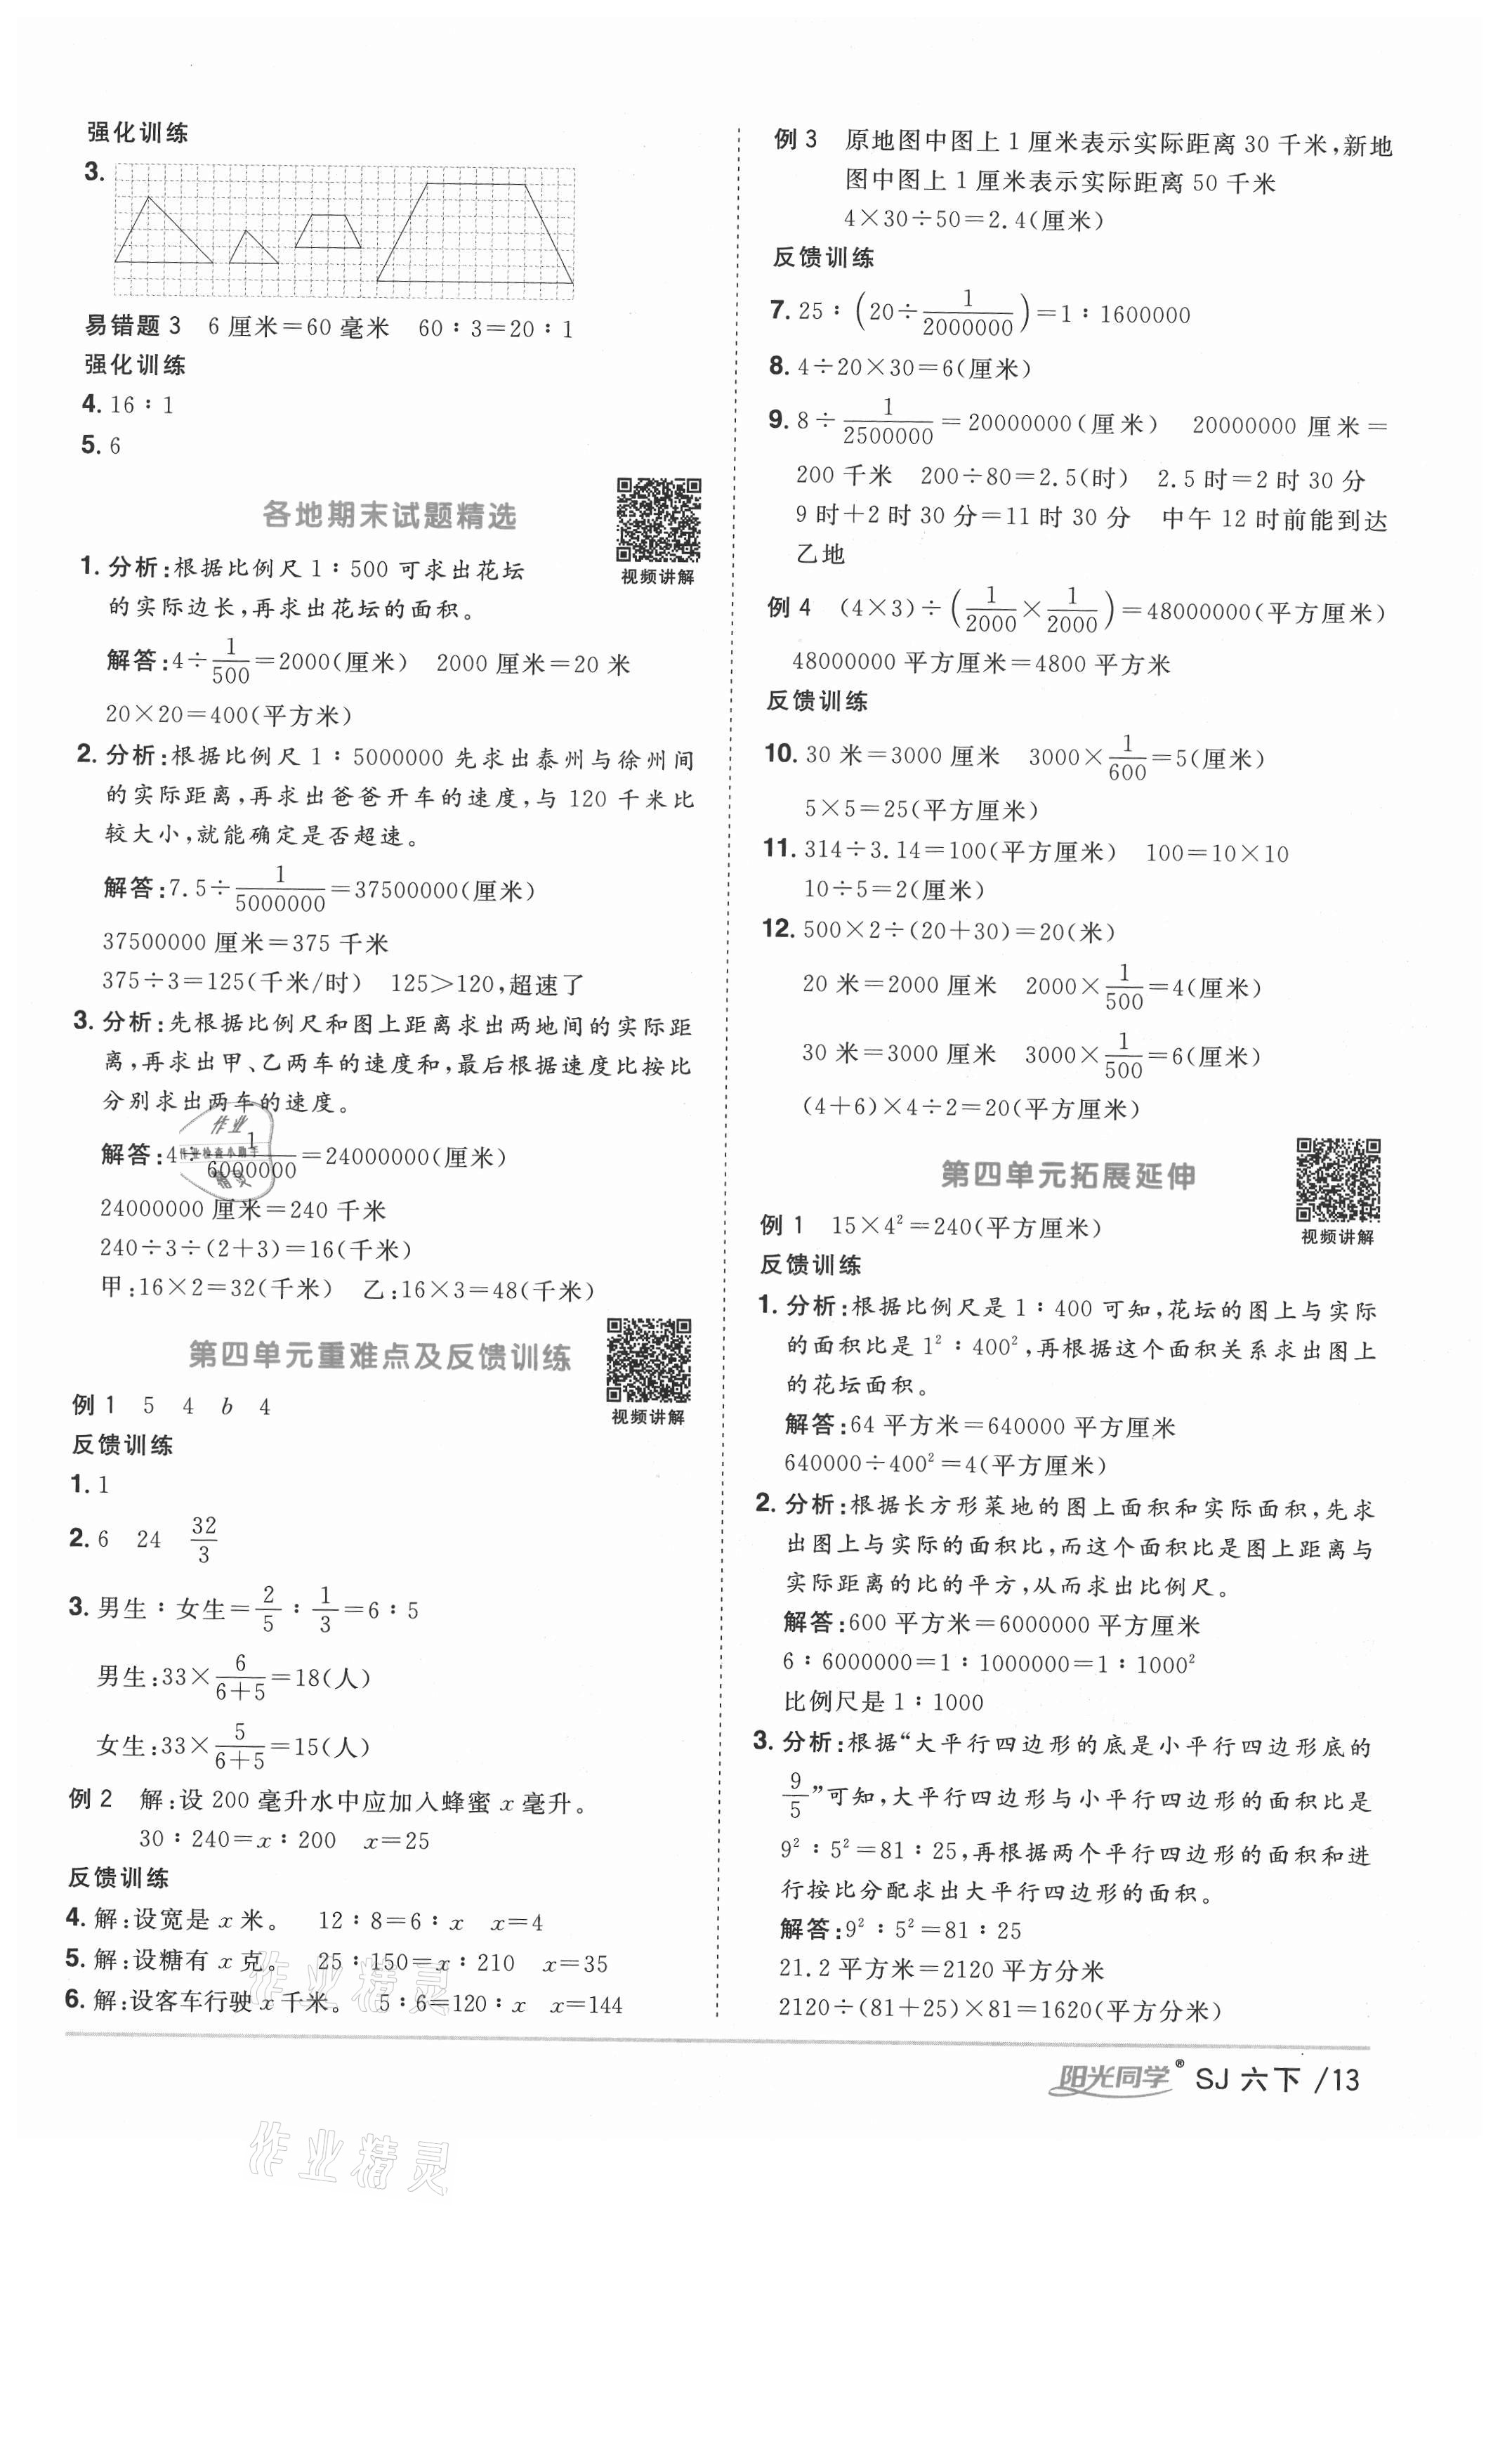 强化训练
3.
易错题 3 6 厘米=60 毫米 60∶3=20∶1
强化训练
4. 16∶1
5. 6
各地期末试题精选
视频讲解
1. 分析:根据比例尺 1∶500 可求出花坛
的实际边长,再求出花坛的面积。
解答:4÷1/500=2000(厘米) 2000 厘米=20 米
20×20=400(平方米)
2. 分析:根据比例尺 1∶5000000 先求出泰州与徐州间
的实际距离,再求出爸爸开车的速度,与 120 千米比
较大小,就能确定是否超速。
解答:7.5÷1/5000000=37500000(厘米)
37500000 厘米=375 千米
375÷3=125(千米/时) 125>120,超速了
3. 分析:先根据比例尺和图上距离求出两地间的实际距
离,再求出甲、乙两车的速度和,最后根据速度比按比
分别求出两车的速度。
解答:4÷1/6000000=24000000(厘米)
24000000 厘米=240 千米
240÷3÷(2+3)=16(千米)
甲:16×2=32(千米) 乙:16×3=48(千米)
第四单元重难点及反馈训练
视频讲解
例 1 5 4 b 4
反馈训练
1. 1
2. 6 24 32/3
3. 男生∶女生=2/5∶1/3=6∶5
男生:33×6/(6+5)=18(人)
女生:33×5/(6+5)=15(人)
例 2 解:设 200 毫升水中应加入蜂蜜 x 毫升。
30∶240=x∶200 x=25
反馈训练
4. 解:设宽是 x 米。 12∶8=6∶x x=4
5. 解:设糖有 x 克。 25∶150=x∶210 x=35
6. 解:设客车行驶 x 千米。 5∶6=120∶x x=144
例 3 原地图中图上 1 厘米表示实际距离 30 千米,新地
图中图上 1 厘米表示实际距离 50 千米
4×30÷50=2.4(厘米)
反馈训练
7. 25∶(20÷1/2000000)=1∶1600000
8. 4÷20×30=6(厘米)
9. 8÷1/2500000=20000000(厘米) 20000000 厘米=
200 千米 200÷80=2.5(时) 2.5 时=2 时 30 分
9 时+2 时 30 分=11 时 30 分 中午 12 时前能到达
乙地
例 4 (4×3)÷(1/2000×1/2000)=48000000(平方厘米)
48000000 平方厘米=4800 平方米
反馈训练
10. 30 米=3000 厘米 3000×1/600=5(厘米)
5×5=25(平方厘米)
11. 314÷3.14=100(平方厘米) 100=10×10
10÷5=2(厘米)
12. 500×2÷(20+30)=20(米)
20 米=2000 厘米 2000×1/500=4(厘米)
30 米=3000 厘米 3000×1/500=6(厘米)
(4+6)×4÷2=20(平方厘米)
第四单元拓展延伸
视频讲解
例 1 15×4²=240(平方厘米)
反馈训练
1. 分析:根据比例尺是 1∶400 可知,花坛的图上与实际
的面积比是 1²∶400²,再根据这个面积关系求出图上
的花坛面积。
解答:64 平方米=640000 平方厘米
640000÷400²=4(平方厘米)
2. 分析:根据长方形菜地的图上面积和实际面积,先求
出图上与实际的面积比,而这个面积比是图上距离与
实际距离的比的平方,从而求出比例尺。
解答:600 平方米=6000000 平方厘米
6∶6000000=1∶1000000=1∶1000²
比例尺是 1∶1000
3. 分析:根据“大平行四边形的底是小平行四边形底的
9/5”可知,大平行四边形与小平行四边形的面积比是
9²∶5²=81∶25,再根据两个平行四边形的面积和进
行按比分配求出大平行四边形的面积。
解答:9²∶5²=81∶25
21.2 平方米=2120 平方分米
2120÷(81+25)×81=1620(平方分米)
阳光同学® SJ 六下 /13
作业精灵
作业精灵
作业
作业检查小助手
精灵